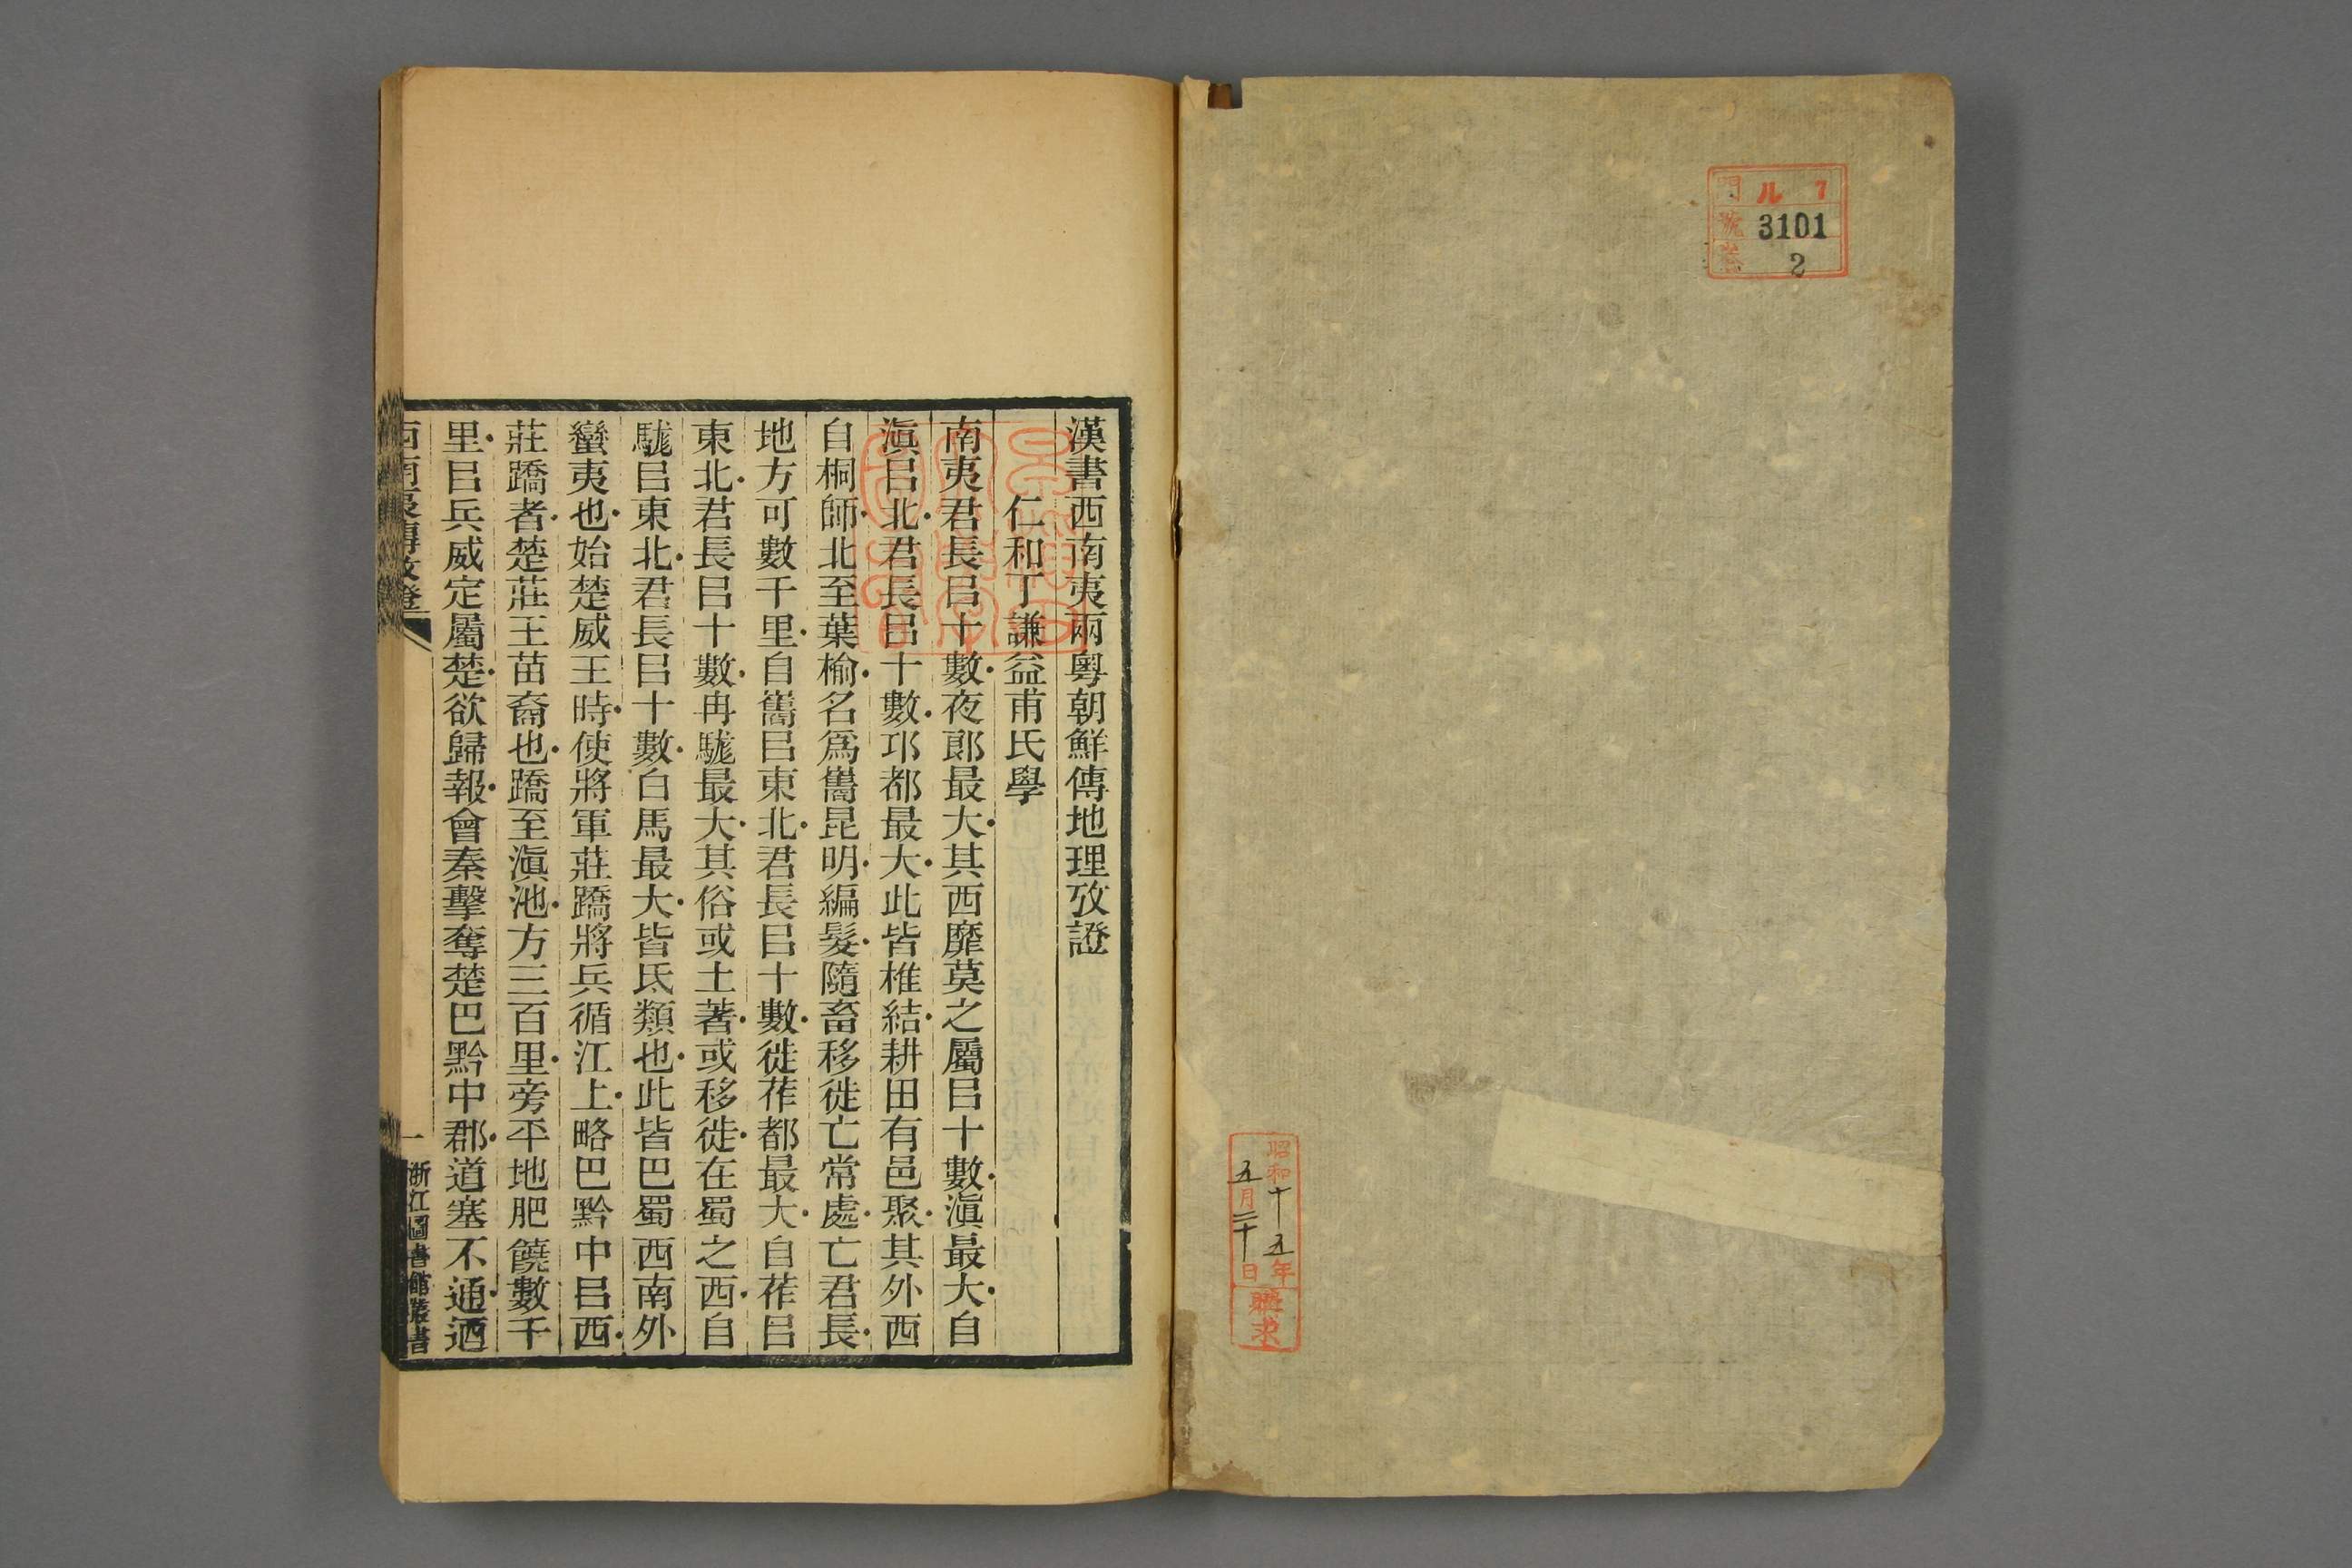 門 ル 7
號 3101
卷 2
昭和十五年
五月二十日
購求
漢書西南夷兩粵朝鮮傳地理攷證
仁和丁謙益甫氏學
南夷君長㠯十數夜郞最大其西靡莫之屬㠯十數滇最大自
滇㠯北君長㠯十數邛都最大此皆椎結耕田有邑聚其外西
自桐師北至葉榆名爲巂昆明編髮隨畜移徙亡常處亡君長
地方可數千里自巂㠯東北君長㠯十數徙莋都最大自莋㠯
東北君長㠯十數冉駹最大其俗或土著或移徙在蜀之西自
駹㠯東北君長㠯十數白馬最大皆氐類也此皆巴蜀西南外
蠻夷也始楚威王時使將軍莊蹻將兵循江上略巴黔中㠯西
莊蹻者楚莊王苗裔也蹻至滇池方三百里旁平地肥饒數千
里㠯兵威定屬楚欲歸報會秦擊奪楚巴黔中郡道塞不通迺
西南夷傳攷證 一 浙江圖書館叢書